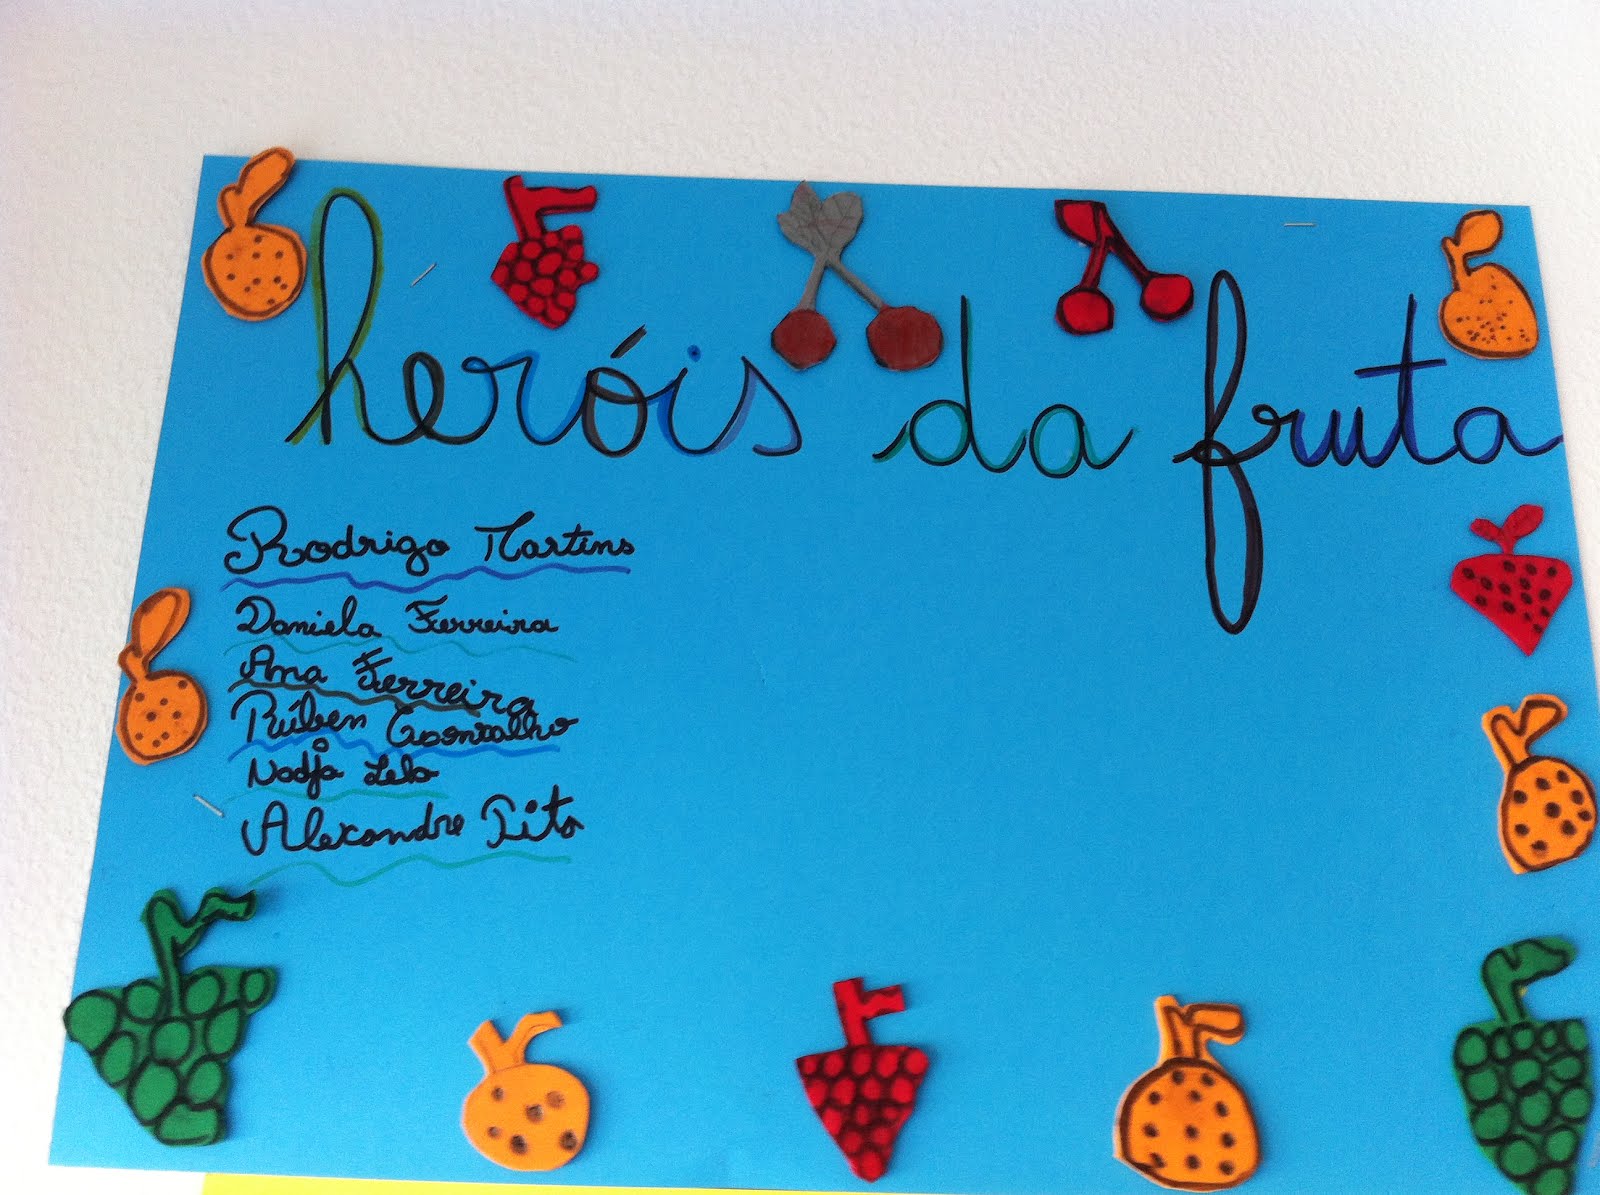 heróis da fruta
Rodrigo Martins
Daniela Ferreira
Ana Ferreira
Rúben Gonzalho
Nadja Lelo
Alexandre Pita